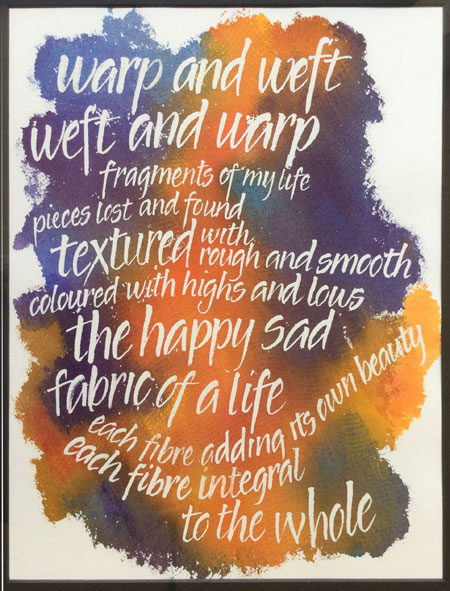 warp and weft
weft and warp
fragments of my life
pieces lost and found
textured with
rough and smooth
coloured with highs and lows
the happy sad
fabric of a life
each fibre adding its own beauty
each fibre integral
to the whole